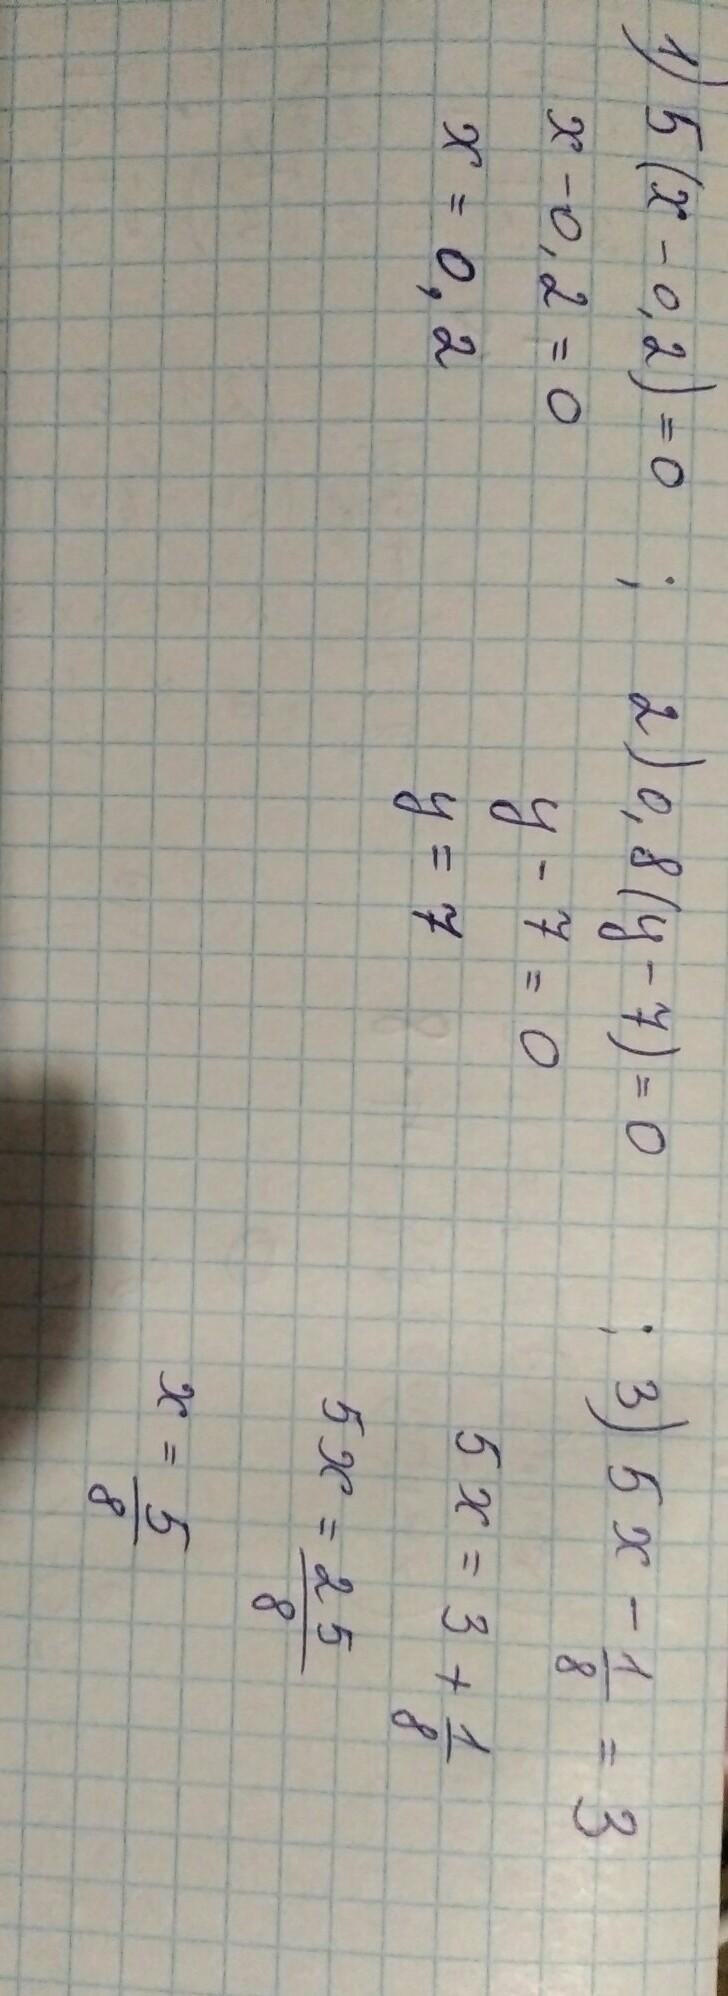 1) 5(x-0,2)=0 ; 2) 0,8(y-7)=0 ; 3) 5x - 1/8 = 3
x-0,2=0
x=0,2
y-7=0
y=7
5x = 3 + 1/8
5x = 25/8
x = 5/8